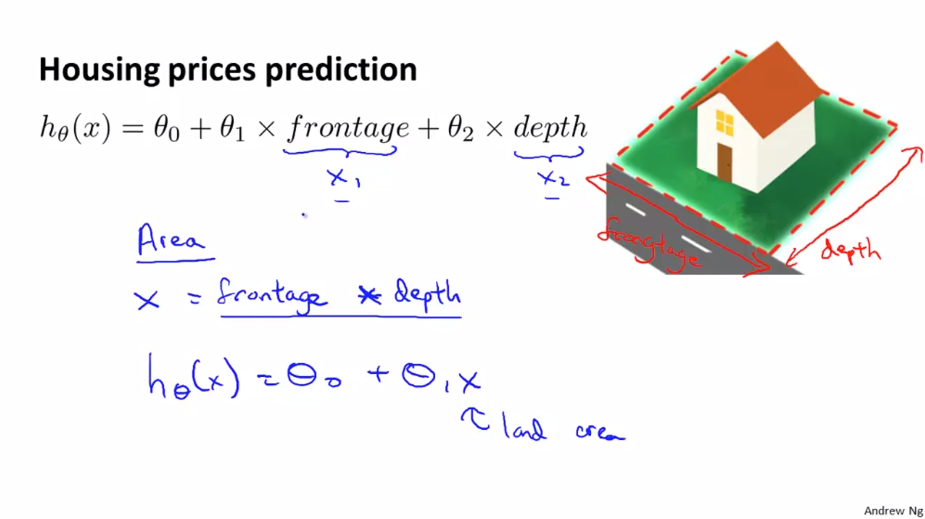 Housing prices prediction
hθ(x) = θ0 + θ1 × frontage + θ2 × depth
x1
x2
frongtage
depth
Area
x = frontage * depth
hθ(x) = θ0 + θ1 x
land area
Andrew Ng